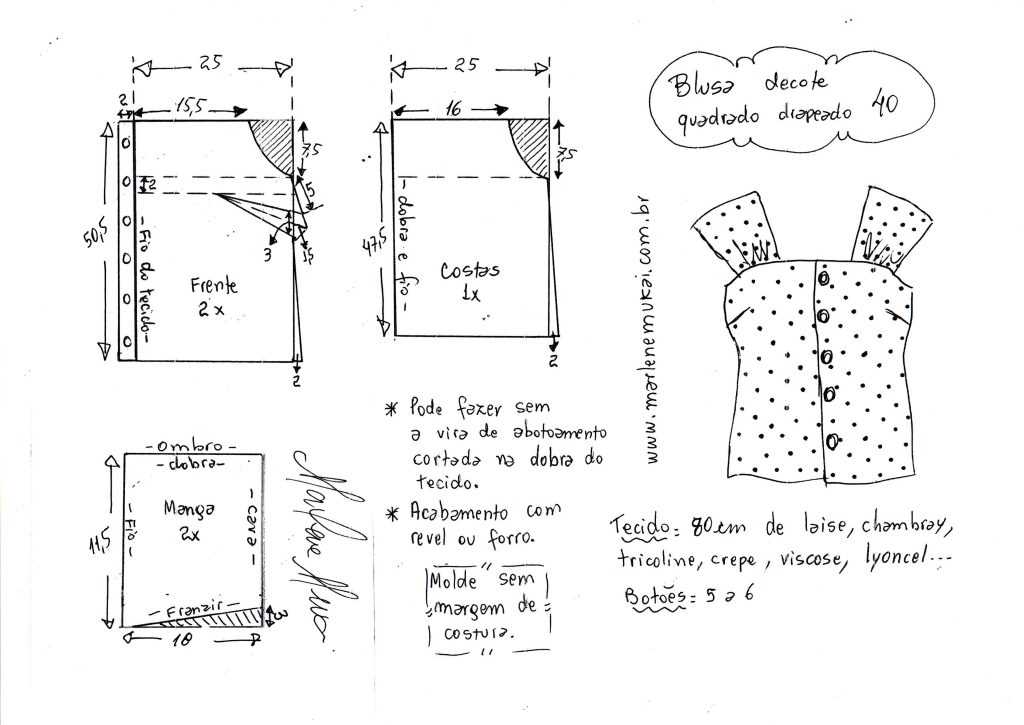 Blusa decote
quadrado drapeado 40
25
2
15,5
7,5
2
5
3
1,5
50,5
- Fio do tecido -
Frente
2x
2
25
16
7,5
47,5
- dobra e fio -
Costas
1x
2
www.marlenemukai.com.br
* Pode fazer sem
a vira de abotoamento
cortada na dobra do
tecido.
* Acabamento com
revel ou forro.
Molde sem
margem de
costura.
- ombro -
- dobra -
Manga
2x
11,5
- Fio -
- cava -
- Franzir -
3
10
Marlene Mukai
Tecido: 80cm de laise, chambray,
tricoline, crepe, viscose, lyoncel...
Botões: 5 a 6